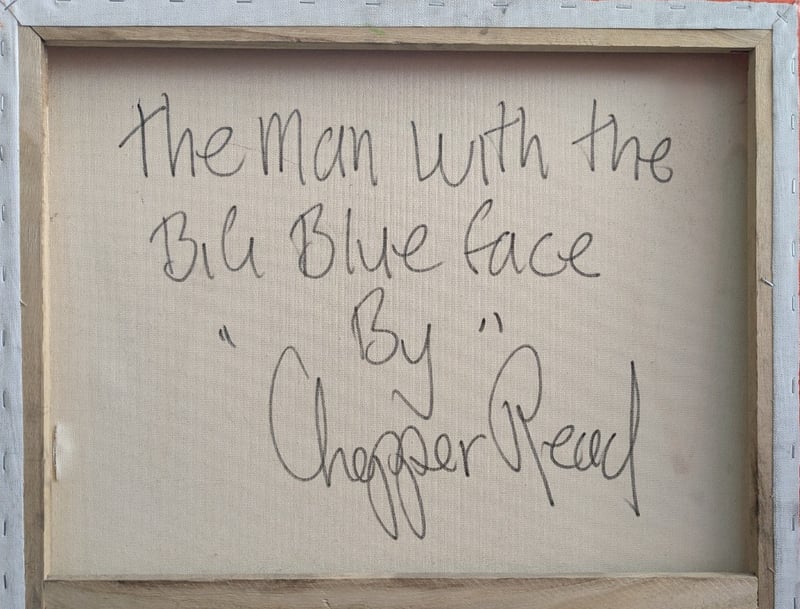 the Man with the
BiG Blue face
" By "
Chopper Read